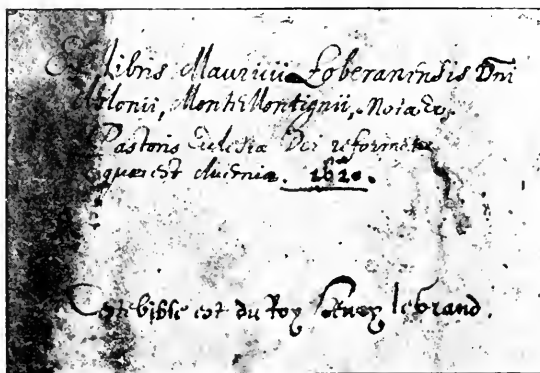 Ex libris Mauritii Loberanensis Dni
Ablonii, Montis Montignii, Nota &
Pastoris Eclesiæ Dei reformatæ
quæ est 1620.
Ceste bible est du Roy Henry le grand.